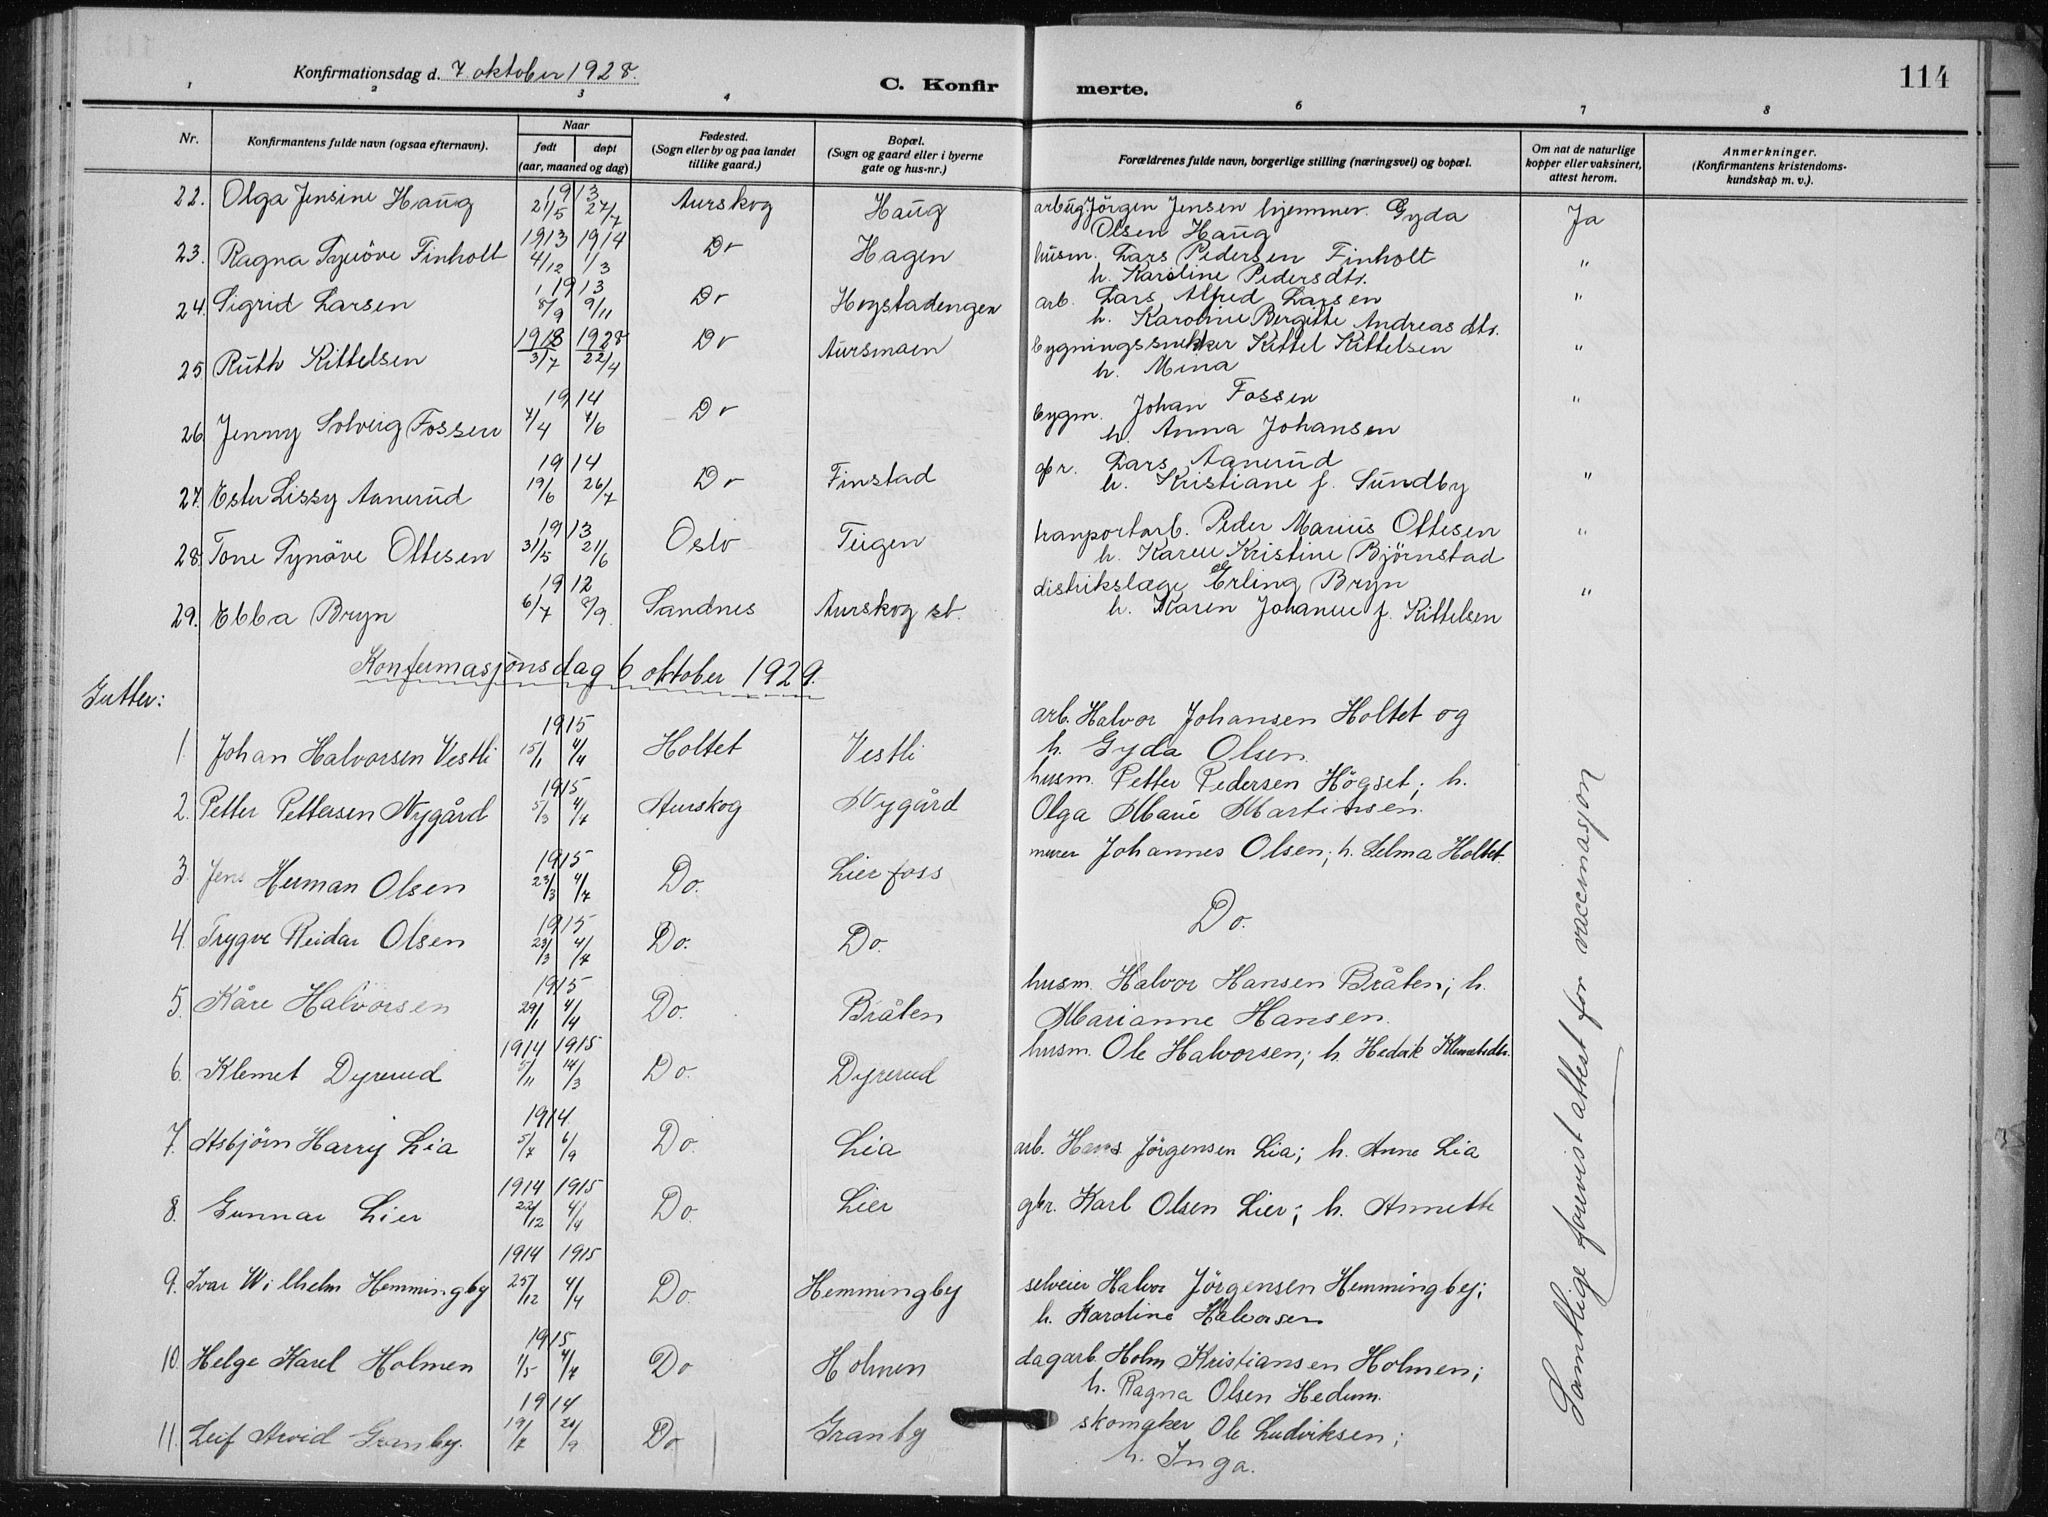 Konfirmationsdag d. 7. oktober 1928.
C. Konfirmerte.
114
1 2 3 4 5 6 7 8
Nr. Konfirmantens fulde navn (ogsaa efternavn). Naar født døpt (aar, maaned og dag) Fødested. (Sogn eller by og paa landet tillike gaard.) Bopæl. (Sogn og gaard eller i byerne gate og hus-nr.) Forældrenes fulde navn, borgerlige stilling (næringsvei) og bopæl. Om hat de naturlige kopper eller vaksinert, attest herom. Anmerkninger. (Konfirmantens kristendomskundskap m. v.).
22. Olga Jensine Haug 1913 21/5 27/7 Aurskog Haug arbug. Jörgen Jensen hjemmer. Gyda Olsen Haug Ja
23. Ragna Synöve Finholt 1913 4/12 1914 1/3 Do Hagen husm. Lars Pedersen Finholt h. Karoline Pedersdtr. "
24. Sigrid Larsen 1913 8/9 9/11 Do Hogstadengen arb. Lars Alfred Larsen h. Karoline Bergitte Andreasdtr. "
25 Ruth Kittelsen 1913 3/7 1928 22/4 Do Aursmoen bygningssnekker Kittel Kittelsen h. Mina "
26. Jenny Solveig Fossen 1914 7/4 7/6 Do bygm. Johan Fossen h. Anna Johansen "
27. Ester Lissy Aanerud 1914 19/6 26/7 Do Finstad gbr. Lars Aanerud h. Kristiane f. Sundby "
28. Tone Synöve Ottesen 1913 31/5 21/6 Oslo Teigen tranportarb. Peder Marius Ottesen h. Karen Kristine Björnstad "
29. Ebba Bryn 1912 6/7 8/9 Sandnes Aurskog st. distrikslæge Erling Bryn h. Karen Johanne f. Kittelsen "
Konfirmasjonsdag 6 oktober 1929.
Gutter:
1. Johan Halvorsen Vestli 1915 15/1 4/4 Holtet Vestli arb. Halvor Johansen Holtet og h. Gyda Olsen.
2. Petter Pettersen Nygård 1915 5/3 4/7 Aurskog Nygård husm. Petter Pedersen Högset; h. Olga Marie Martinsen.
3. Jens Herman Olsen 1915 23/3 4/7 Do. Lierfoss murer Johannes Olsen; h. Selma Holtet.
4. Trygve Reidar Olsen 1915 23/3 4/7 Do. Do. Do.
5. Kåre Halvorsen 1915 29/1 4/4 Do. Bråten husm. Halvor Hansen Bråten; h. Marianne Hansen.
6. Klemet Dyrerud 1914 5/11 1915 14/3 Do. Dyrerud husm. Ole Halvorsen; h. Hedvik Klemetsdtr.
7. Asbjörn Harry Lia 1914 5/7 6/9 Do. Lia arb. Hans Jörgensen Lia; h. Anne Lia
8. Gunnar Lier 1914 22/12 1915 4/4 Do. Lier gbr. Karl Olsen Lier; h. Annette
9. Ivar Wilhelm Hemmingby 1914 25/12 1915 4/4 Do. Hemmingby selveier Halvor Jörgensen Hemmingby; h. Karoline Halvorsen
10. Helge Karel Holmen 1915 1/5 4/7 Do Holmen dagarb. Holm Kristiansen Holmen; h. Ragna Olsen Hedum.
11. Leif Arvid Granby. 1914 19/7 20/9 Do Granby skomaker Ole Ludviksen; h. Inga.
Samtlige forevist attest for vaccinasjon